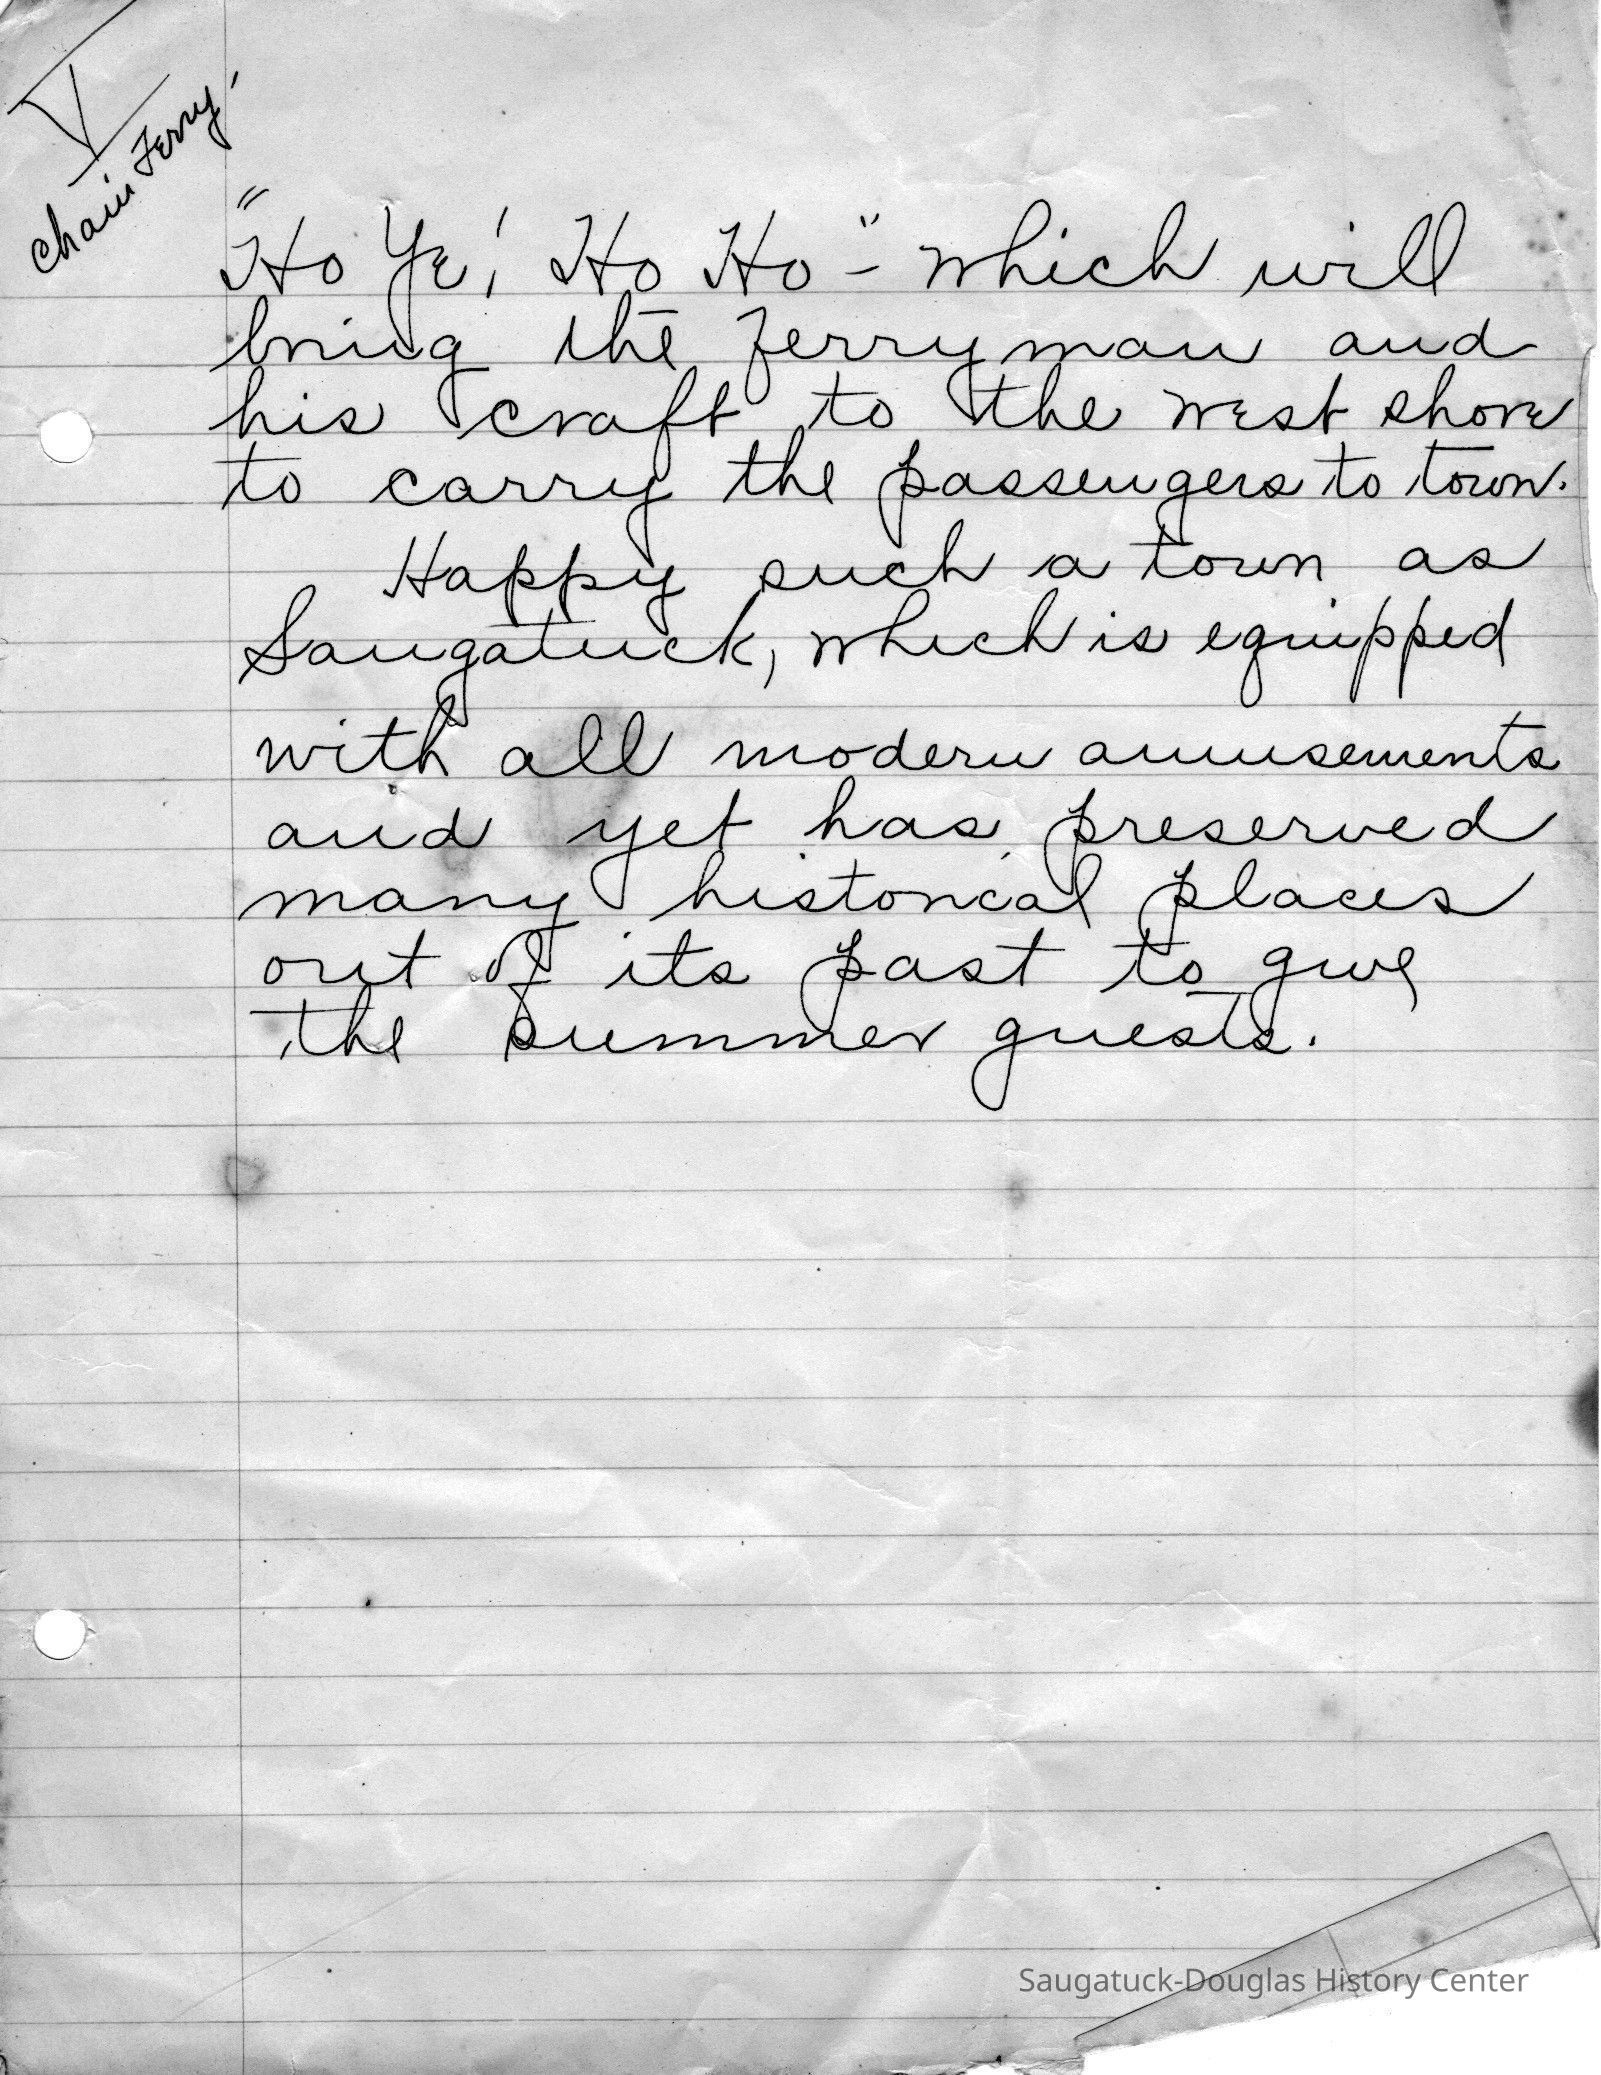 V
Chain Ferry.
"Ho Ye! Ho Ho -" which will
bring the ferryman and
his craft to the west shore
to carry the passengers to town.
Happy such a town as
Saugatuck, which is equipped
with all modern amusements
and yet has preserved
many historical places
out of its past to give
the summer guests.
Saugatuck-Douglas History Center